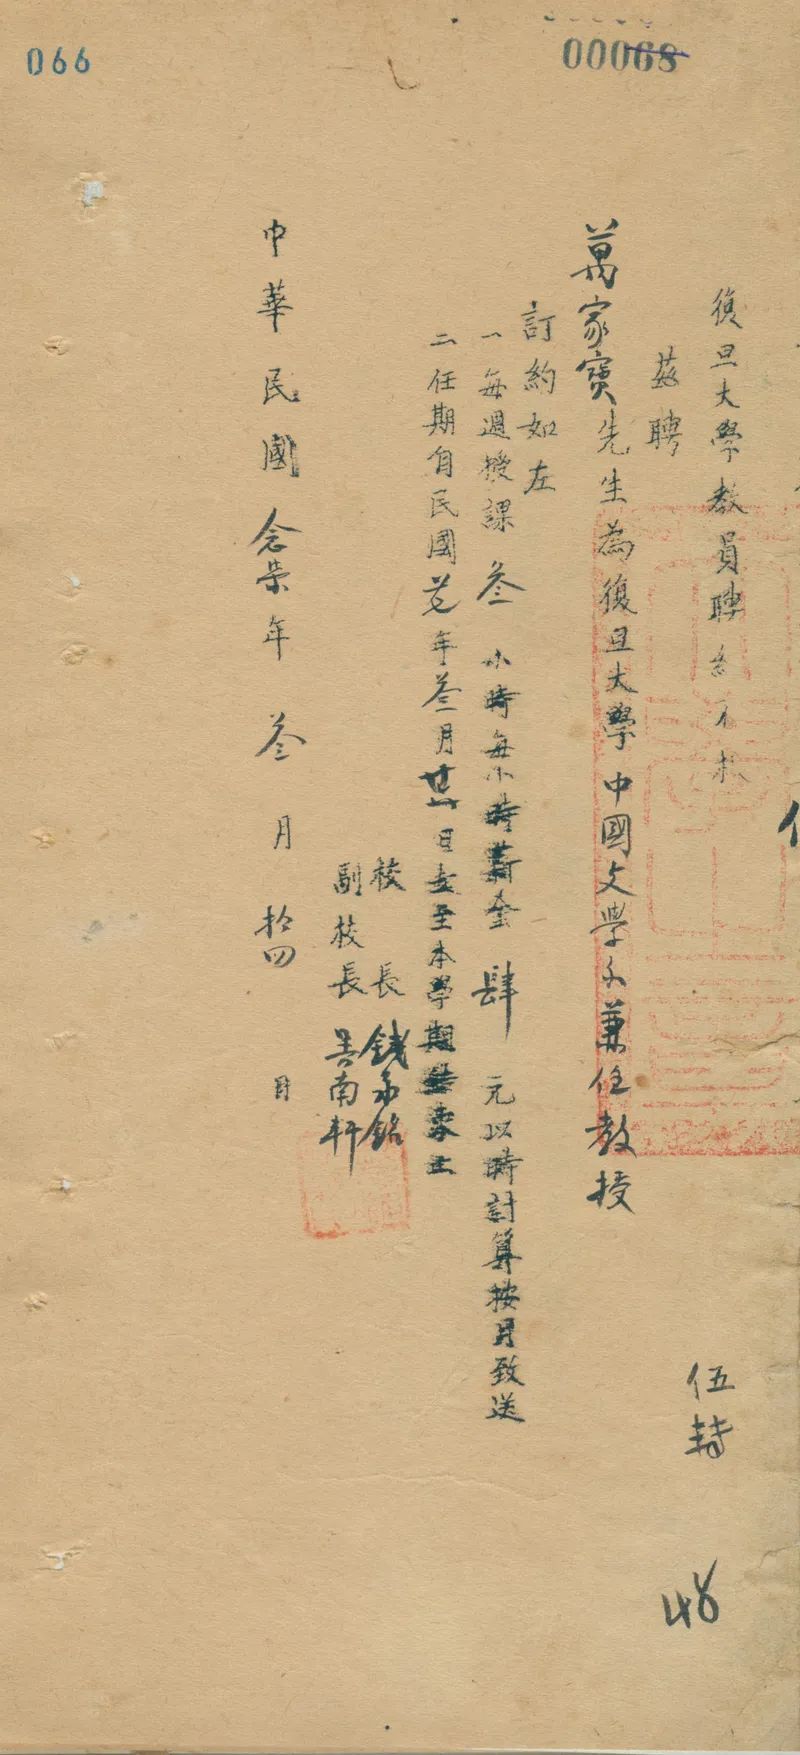 066
00068
復旦大學教員聘約存根
茲聘
萬家寶先生為復旦大學中國文學系兼任教授
訂約如左
一每週授課叁小時每小時薪金肆元以時計算按月致送
二任期自民國廿七年叁月廿一日起至本學期結束止
校長錢永銘
副校長吳南軒
中華民國念柒年叁月拾四日
伍
48